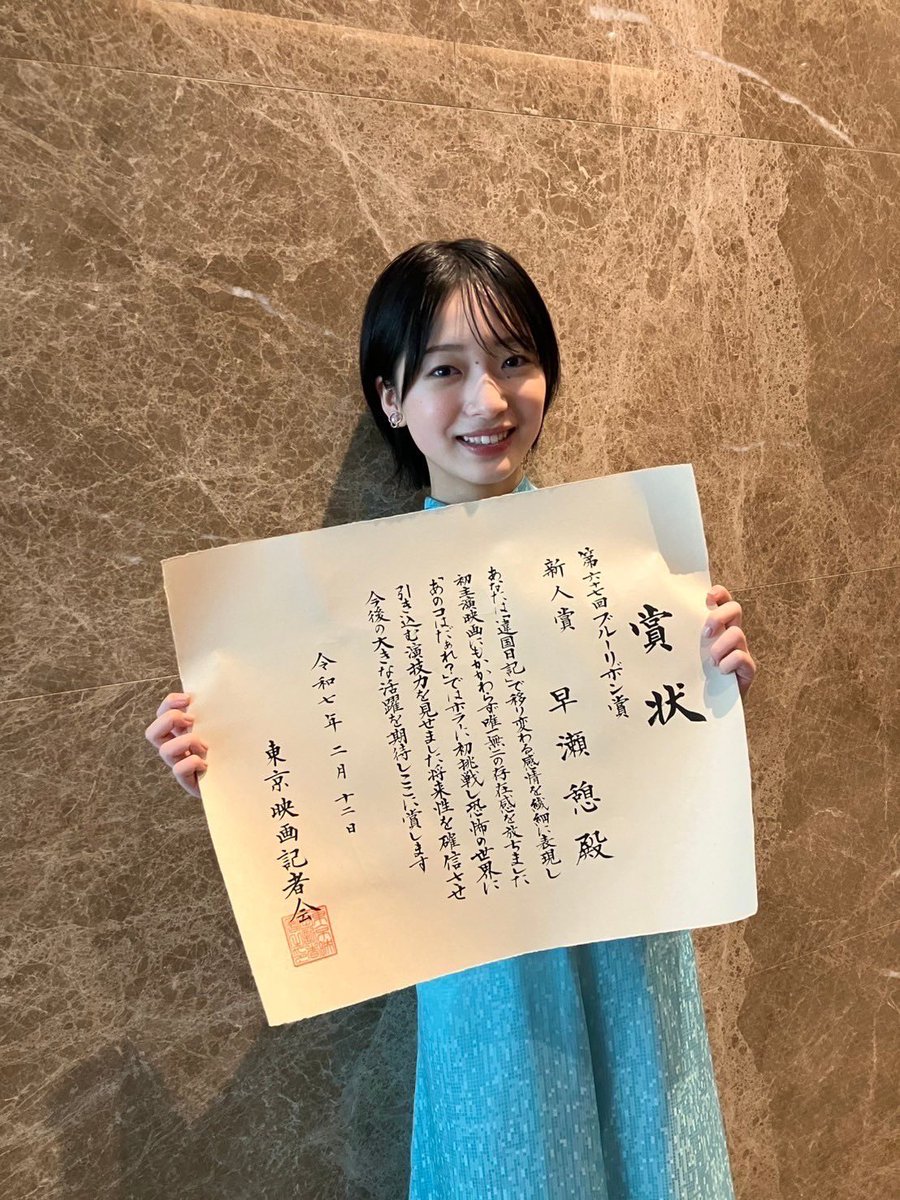 賞状
第六十七回ブルーリボン賞
新人賞 早瀬憩殿
あなたは「違国日記」で移り変わる感情を繊細に表現し
初主演映画にもかかわらず唯一無二の存在感を放ちました
「あのコはだぁれ?」ではホラーに初挑戦し恐怖の世界に
引き込む演技力を見せました将来性を確信させ
今後の大きな活躍を期待しここに賞します
令和七年二月十二日
東京映画記者会